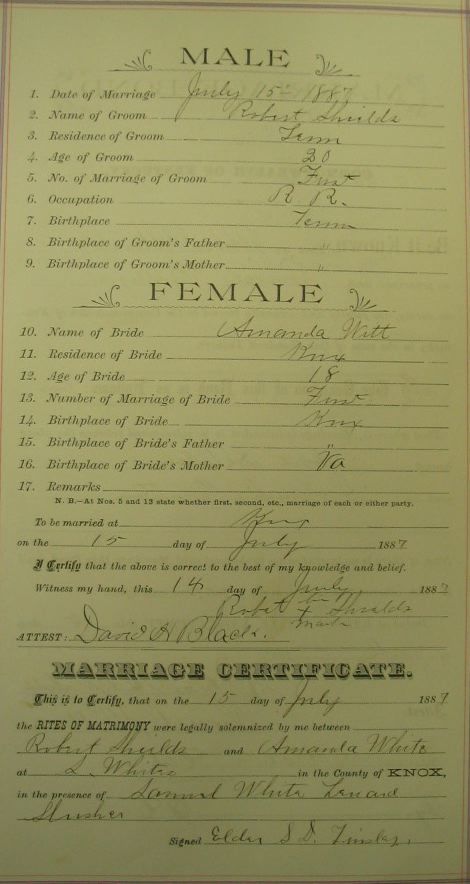 MALE
1. Date of Marriage July 15th 1887
2. Name of Groom Robert Shields
3. Residence of Groom Tenn
4. Age of Groom 20
5. No. of Marriage of Groom First
6. Occupation R R.
7. Birthplace Tenn
8. Birthplace of Groom's Father "
9. Birthplace of Groom's Mother "
FEMALE
10. Name of Bride Amanda Witt
11. Residence of Bride Knx
12. Age of Bride 18
13. Number of Marriage of Bride First
14. Birthplace of Bride Knx
15. Birthplace of Bride's Father "
16. Birthplace of Bride's Mother Va
17. Remarks
N. B.—At Nos. 5 and 13 state whether first, second, etc., marriage of each or either party.
To be married at Knx
on the 15 day of July 1887
I Certify that the above is correct to the best of my knowledge and belief.
Witness my hand, this 14 day of July 1887
Robet his x Shields
mark
ATTEST: David H Black.
MARRIAGE CERTIFICATE.
This is to Certify, that on the 15 day of July 1887
the RITES OF MATRIMONY were legally solemnized by me between
Robert Shields and Amanda White
at S. Whites in the County of KNOX,
in the presence of Samuel White Lenard
Slusher
Signed Elder S D. Tinsley,